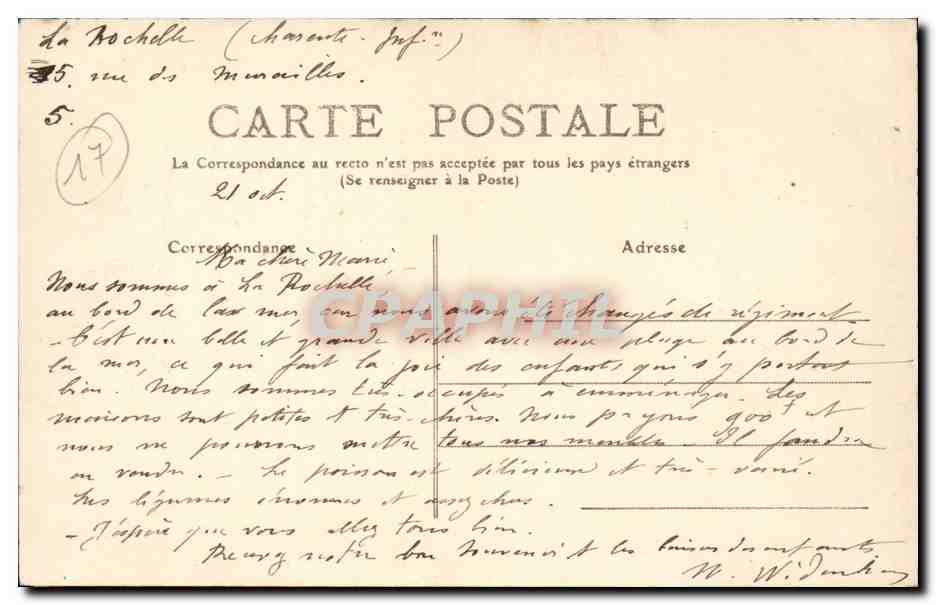 La Rochelle (Charente-Inf.re)
5. rue des Murailles.
5.
17
CARTE POSTALE
La Correspondance au recto n'est pas acceptée par tous les pays étrangers
(Se renseigner à la Poste)
21 oct.
Correspondance
Adresse
Ma chère Marie
Nous sommes à La Rochelle
au bord de la mer car nous avons été changés de régiment
- C'est une belle et grande ville avec une plage au bord de
la mer, ce qui fait la joie des enfants qui s'y portent
bien. Nous sommes très-occupés à emménager. Les
maisons sont petites et très-chères. Nous payons 900f et
nous ne pouvons mettre tous nos meubles. Il faudra
en vendre. - Le poisson est délicieux et très-varié.
Les légumes énormes et assez chers.
- J'espère que vous allez tous bien.
Recevez notre bon souvenir et les baisers des enfants
CPAPHIL